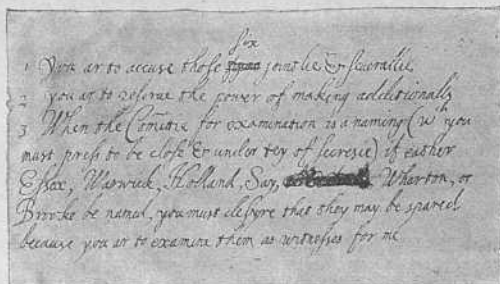 six
1 You ar to accuse those joinclie & severallie
2 you ar to reserve the power of making additionalls
3 When the Comittie for examination is a naming (wch you
must press to be close & under tey of secresie) if eather
Essex, Warwick, Holland, Say, Wharton, or
Brooke be named, you must desyre that they may be spared
because you ar to examine them as witnesses for me